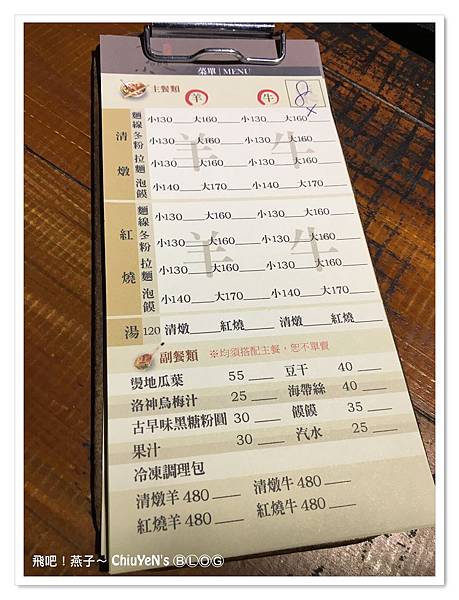 菜單 | MENU
主餐類 羊 牛 8x
清燉
麵線 小130 大160 小130 大160
冬粉 小130 大160 小130 大160
拉麵 小130 大160 小130 大160
泡饃 小140 大170 小140 大170
羊 牛
紅燒
麵線 小130 大160 小130 大160
冬粉 小130 大160 小130 大160
拉麵 小130 大160 小130 大160
泡饃 小140 大170 小140 大170
羊 牛
湯 120 清燉 紅燒 清燉 紅燒
副餐類 ※均須搭配主餐，恕不單賣
燙地瓜葉 55 豆干 40
洛神烏梅汁 25 海帶絲 40
古早味黑糖粉圓 30 饃饃 35
果汁 30 汽水 25
冷凍調理包
清燉羊 480 清燉牛 480
紅燒羊 480 紅燒牛 480
飛吧！燕子～ ChiuYeN's BLOG